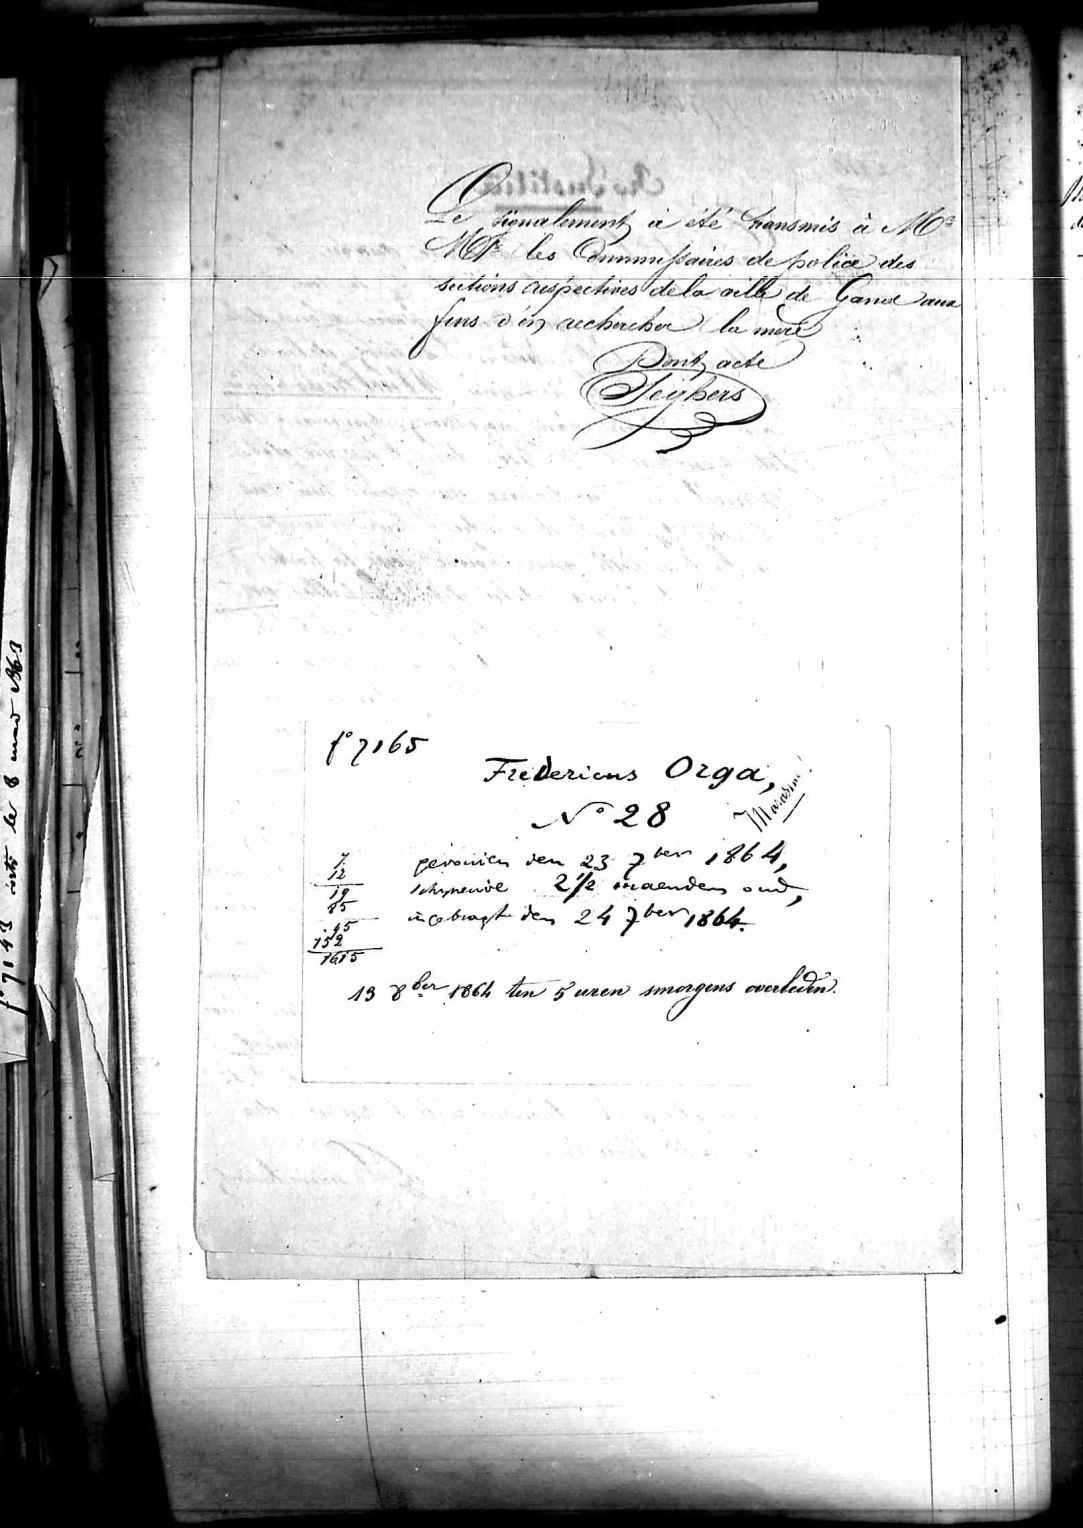 Le signalement à été transmis à Mrs
MM les Commissaires de police des
sections respectives de la ville de Gand aux
fins d'en rechercher la mère
Dont acte
Seghers
f° 7165
Fredericus Orga,
N° 28
gevonden den 23 7ber 1864,
schynende 2 1/2 maenden oud,
ingebragt den 24 7ber 1864.
7
12
19
85
95
752
1615
13 8ber 1864 ten 5 uren smorgens overleden.
f° 7143 le 8 mars 1863